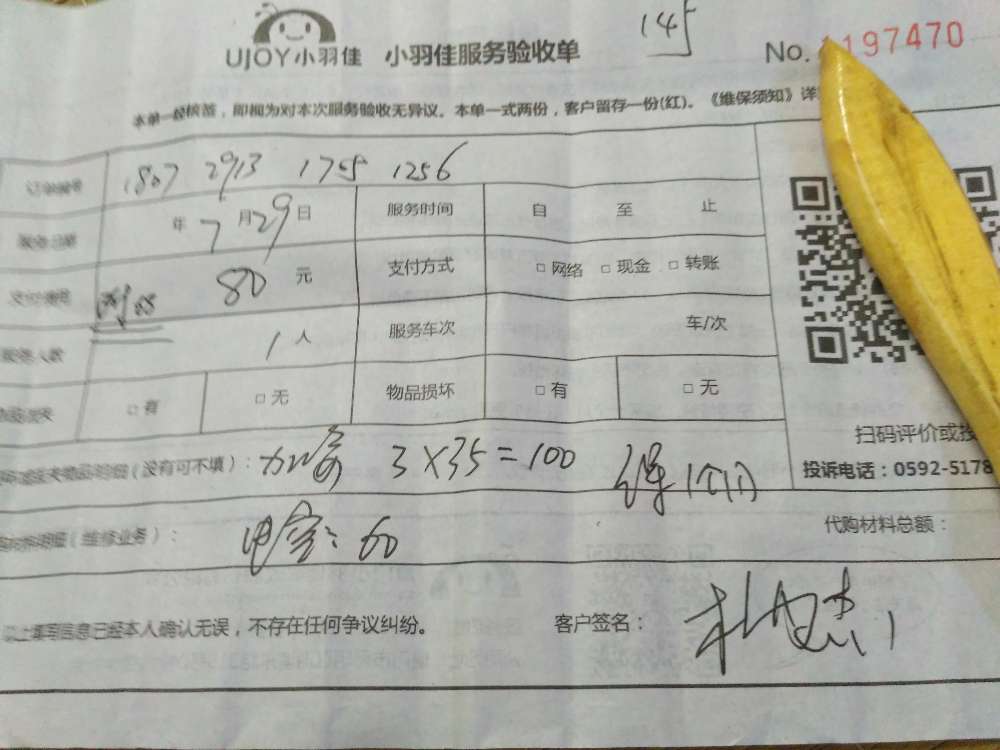 145
UJOY小羽佳 小羽佳服务验收单 No. 1197470
本单一经核签，即视为对本次服务验收无异议。本单一式两份，客户留存一份(红)。《维保须知》详
订单编号 1807 2913 1755 1256
服务日期 年 7月29日 服务时间 自 至 止
支付费用 80 元 支付方式 □网络 □现金 □转账
服务人数 1人 服务车次 车/次
□有 □无 物品损坏 □有 □无
扫码评价或投
物品明细(没有可不填)： 3×35=100
投诉电话：0592-5178
明细(维修业务)： 电容：60 代购材料总额：
以上填写信息已经本人确认无误，不存在任何争议纠纷。 客户签名：